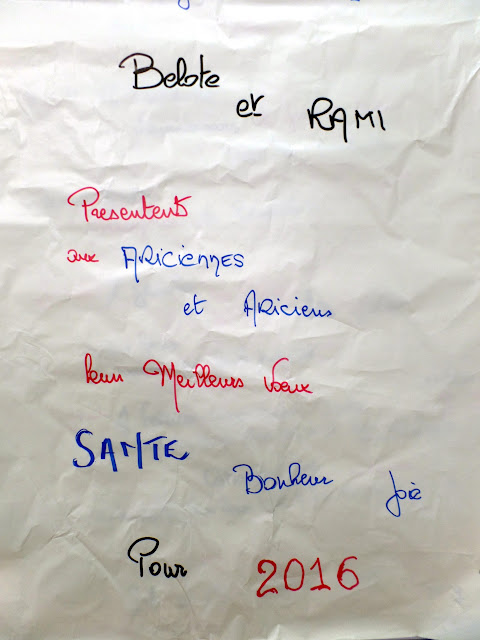 Belote
et RAMI
Presentent
aux ARICIENNES
et ARICIENS
leurs Meilleurs Voeux
SANTE
Bonheur Joie
Pour 2016